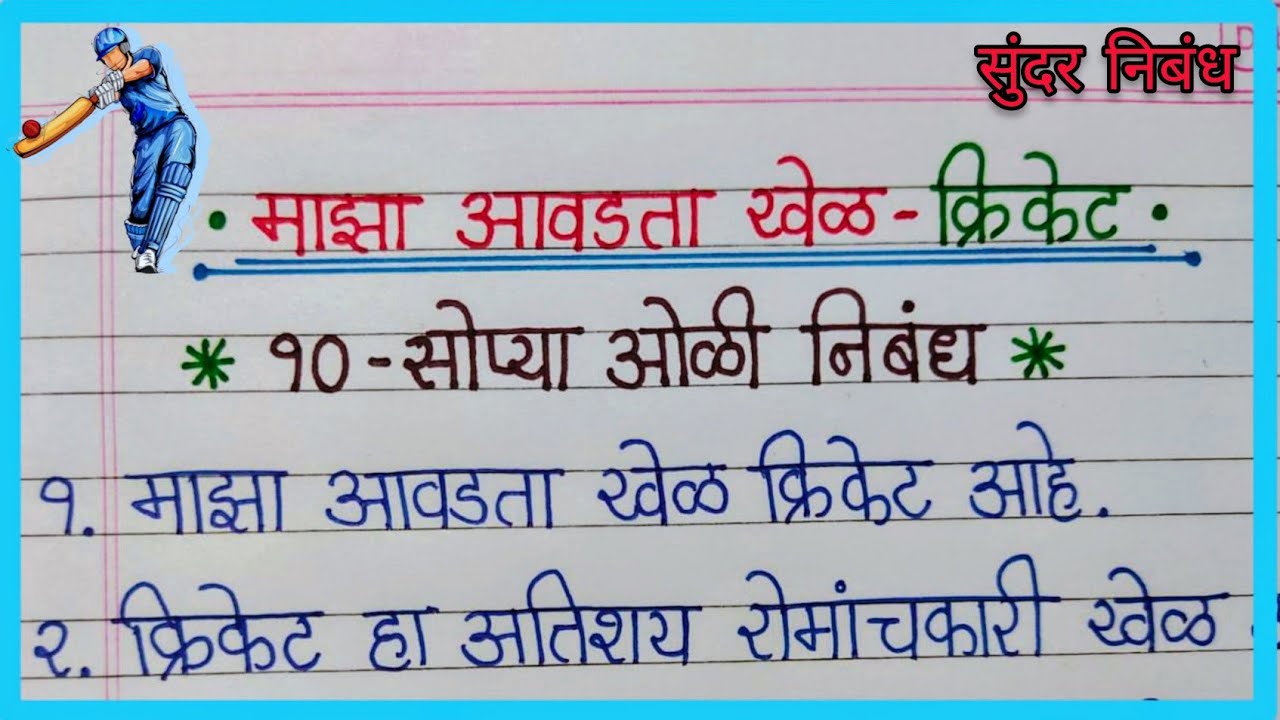 सुंदर निबंध
• माझा आवडता खेळ - क्रिकेट •
* १० - सोप्या ओळी निबंध *
१. माझा आवडता खेळ क्रिकेट आहे.
२. क्रिकेट हा अतिशय रोमांचकारी खेळ